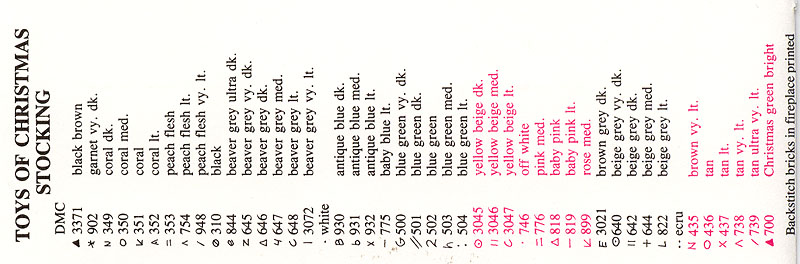 TOYS OF CHRISTMAS
STOCKING
DMC
▲ 3371 black brown
✶ 902 garnet vy. dk.
N 349 coral dk.
O 350 coral med.
⊻ 351 coral
A 352 coral lt.
= 353 peach flesh
^ 754 peach flesh lt.
/ 948 peach flesh vy. lt.
⊘ 310 black
e 844 beaver grey ultra dk.
z 645 beaver grey vy. dk.
Δ 646 beaver grey dk.
4 647 beaver grey med.
C 648 beaver grey lt.
I 3072 beaver grey vy. lt.
· white
B 930 antique blue dk.
b 931 antique blue med.
x 932 antique blue lt.
— 775 baby blue lt.
G 500 blue green vy. dk.
// 501 blue green dk.
2 502 blue green
h 503 blue green med.
: 504 blue green lt.
⊙ 3045 yellow beige dk.
II 3046 yellow beige med.
C 3047 yellow beige lt.
· 746 off white
= 776 pink med.
Δ 818 baby pink
— 819 baby pink lt.
⊻ 899 rose med.
E 3021 brown grey dk.
⊙ 640 beige grey vy. dk.
II 642 beige grey dk.
+ 644 beige grey med.
L 822 beige grey lt.
·· ecru
N 435 brown vy. lt.
O 436 tan
X 437 tan lt.
^ 738 tan vy. lt.
/ 739 tan ultra vy. lt.
▲ 700 Christmas green bright
Backstitch bricks in fireplace printed